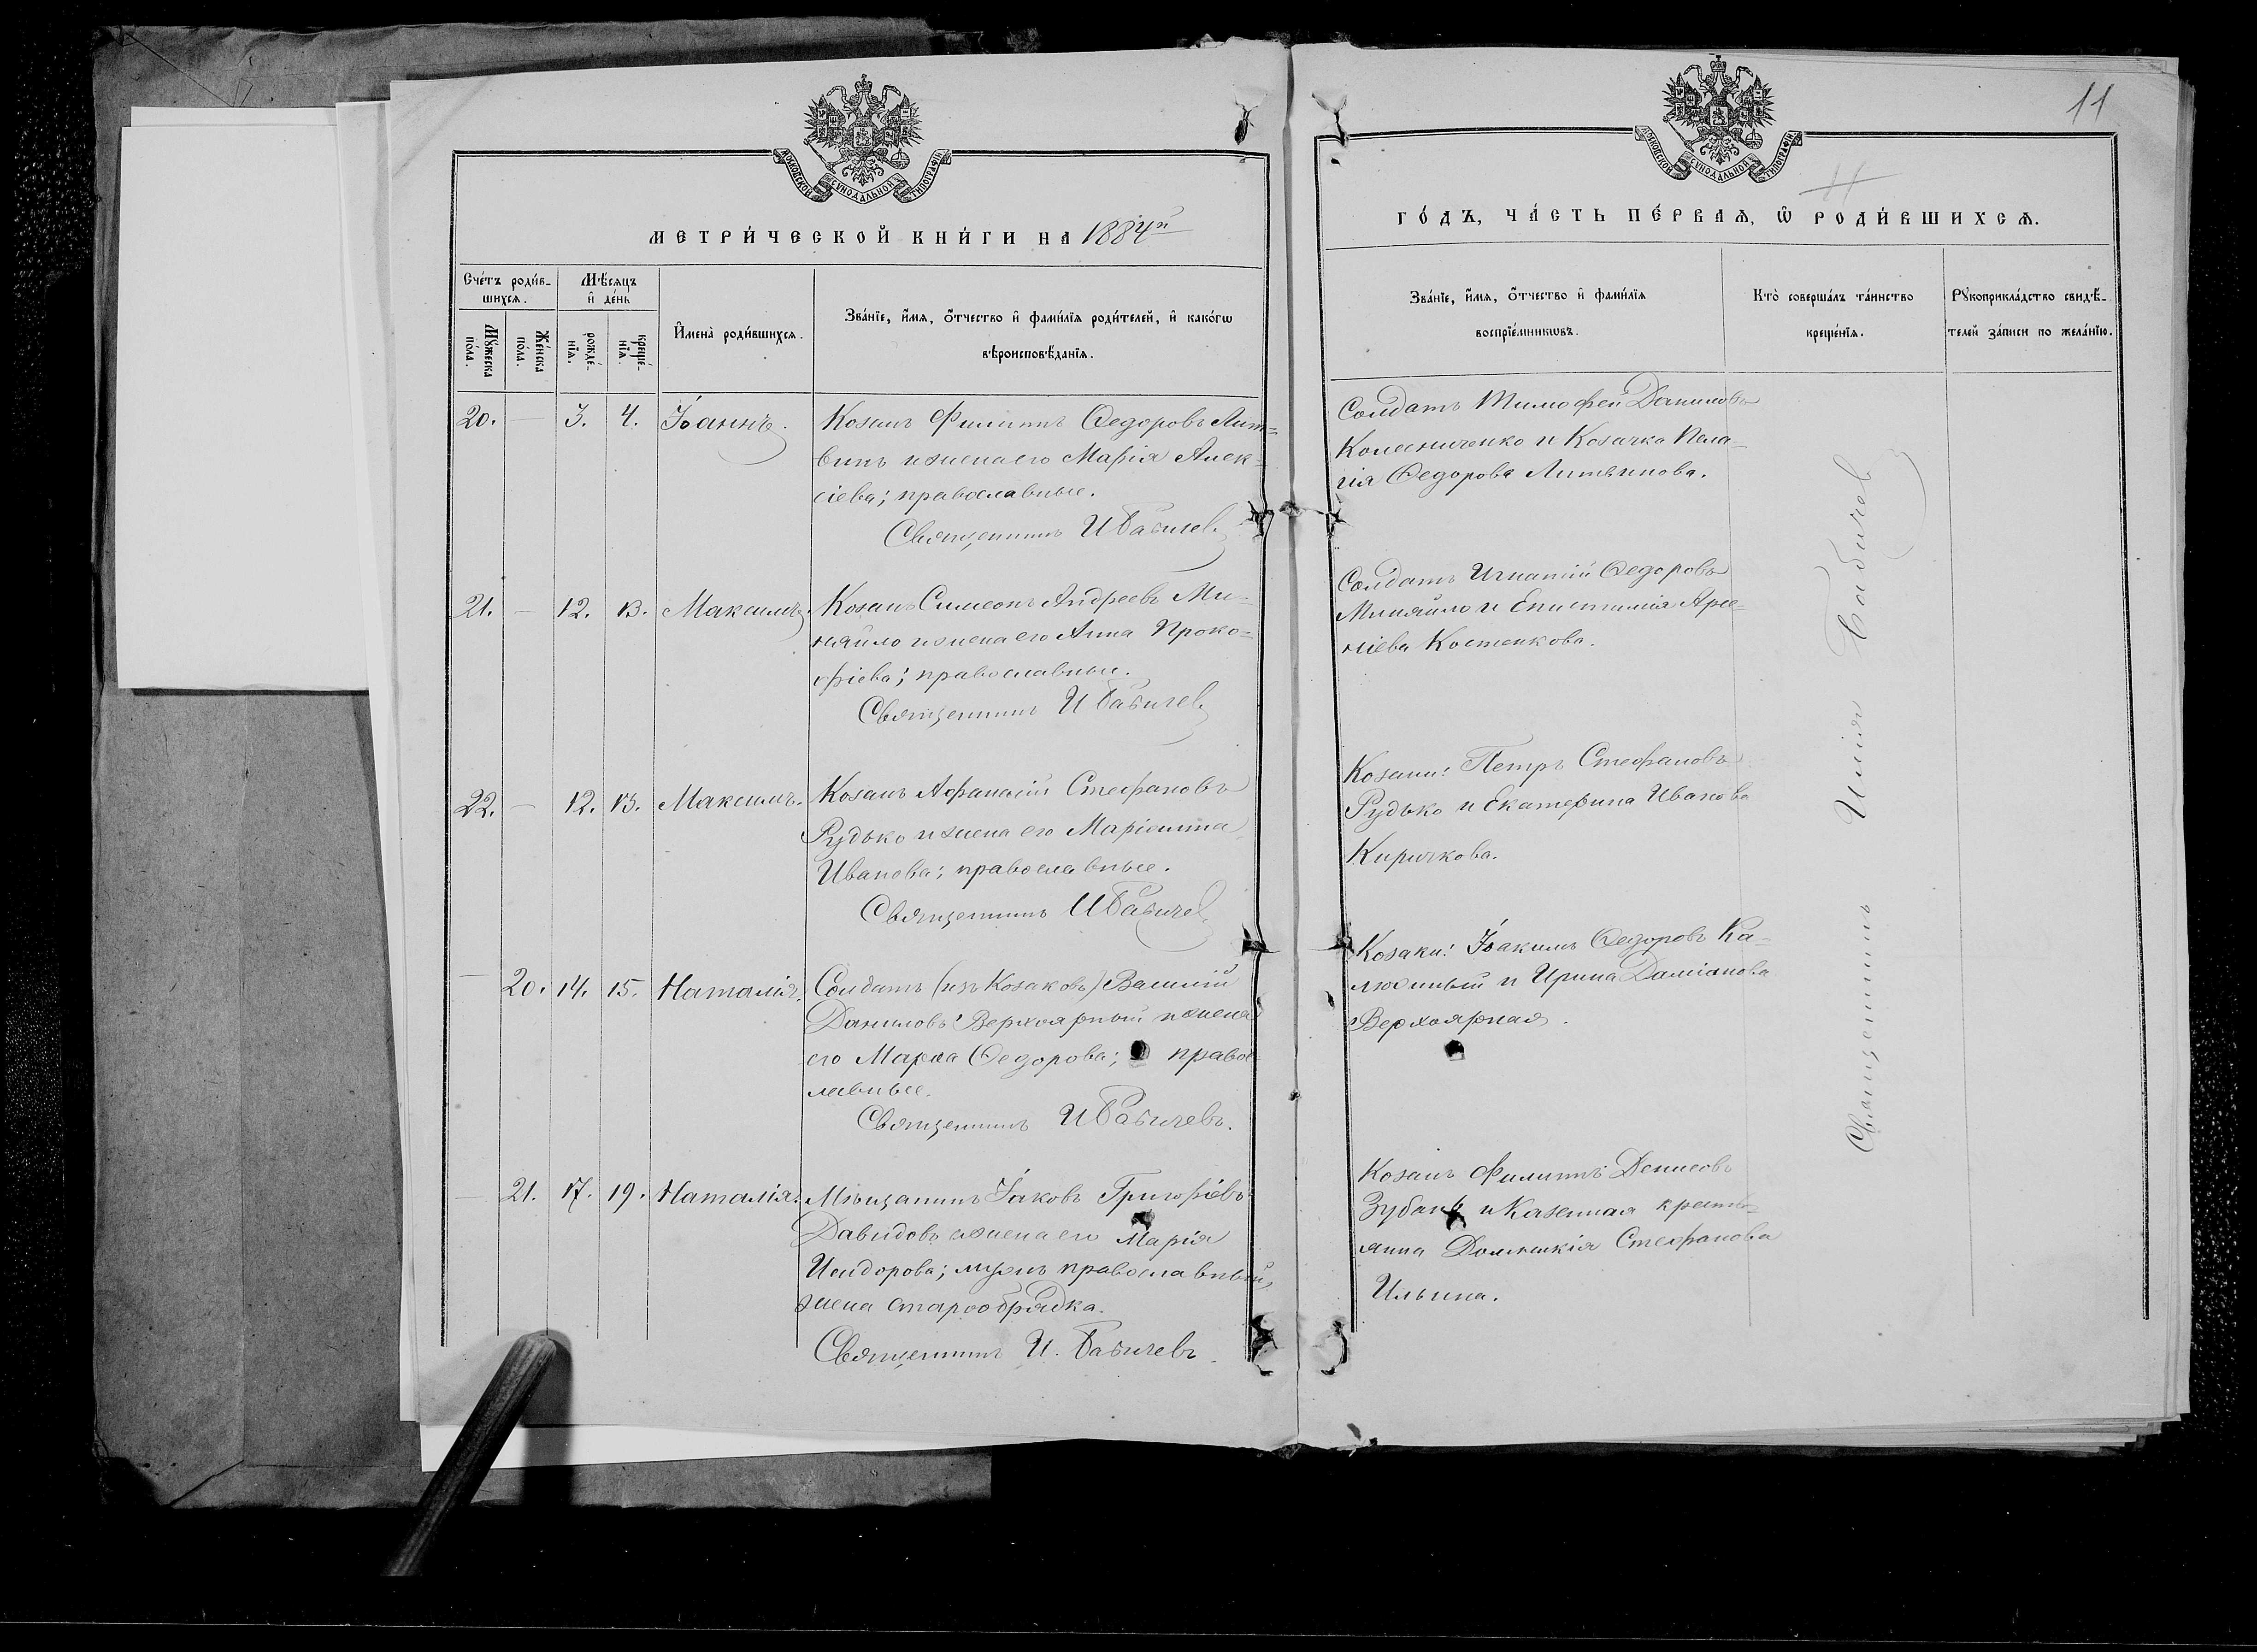 МОСКОВСКОЙ СѴНОДАЛЬНОЙ ТИПОГРАФІИ
МЕТРИ́ЧЕСКОЙ КНИ́ГИ НА 1884й
Сче́тъ роди́в-
шихсѧ.
Мѣ́сѧцъ
и҆ де́нь
Мꙋ́жеска
по́ла.
Же́нска
по́ла.
рожде́-
нїѧ.
креще́-
нїѧ.
И҆мена̀ роди́вшихсѧ.
Зва́нїе, и҆́мѧ, ѻ҆́тчество и҆ фами́лїѧ роди́телей, и҆ како́гѡ
вѣроисповѣ́данїѧ.
20. — 3. 4. Іоаннъ.
Козакъ Филиппъ Ѳедоровъ Лит=
винъ и жена его Марія Алек-
сіева; православные.
Священникъ И Бабичев
21. — 12. 13. Максимъ
Козакъ Симеонъ Андреевъ Ми-
няйло и жена его Анна Проко=
фіева; православные.
Священникъ И Бабичев
22. — 12. 13. Максимъ.
Козакъ Афанасій Стефановъ
Рудько и жена его Маріанна
Иванова; православные.
Священникъ И Бабичев
— 20. 14. 15. Наталія.
Солдатъ (изъ Козаковъ) Василій
Даниловъ Верхоярный и жена
его Марѳа Ѳедорова; право
славные.
Священникъ И Бабичевъ.
— 21. 17. 19. Наталія.
Мѣщанинъ Іаковъ Григоріевъ
Давидовъ и жена его Марія
Исидорова; мужъ православный,
жена старообрядка.
Священникъ И. Бабичевъ.
11
МОСКОВСКОЙ СѴНОДАЛЬНОЙ ТИПОГРАФІИ
ГО́ДЪ, ЧА́СТЬ ПЕ́РВАѦ, Ѽ РОДИ́ВШИХСѦ.
Зва́нїе, и҆́мѧ, ѻ҆́тчество и҆ фами́лїѧ
воспрїе́мникѡвъ.
Кто̀ соверша́лъ та́инство
креще́нїѧ.
Рꙋкоприкла́дство свидѣ́-
телей за́писи по жела́нїю.
Солдатъ Тимофей Даниловъ
Колесниченко и Козачка Пела-
гія Ѳедорова Литвинова.
Солдатъ Игнатій Ѳедоровъ
Миняйло и Епистимія Арсе-
ніева Костенкова.
Козаки: Петръ Стефановъ
Рудько и Екатерина Иванова
Киричкова.
Козаки: Іоакимъ Ѳедоровъ Ка-
люжный и Ирина Даміанова
Верхоярная.
Козакъ Филиппъ Денисовъ
Зубань и Казенная крестья-
янка Домникія Стефанова
Ильина.
Священникъ Илия Бабичев